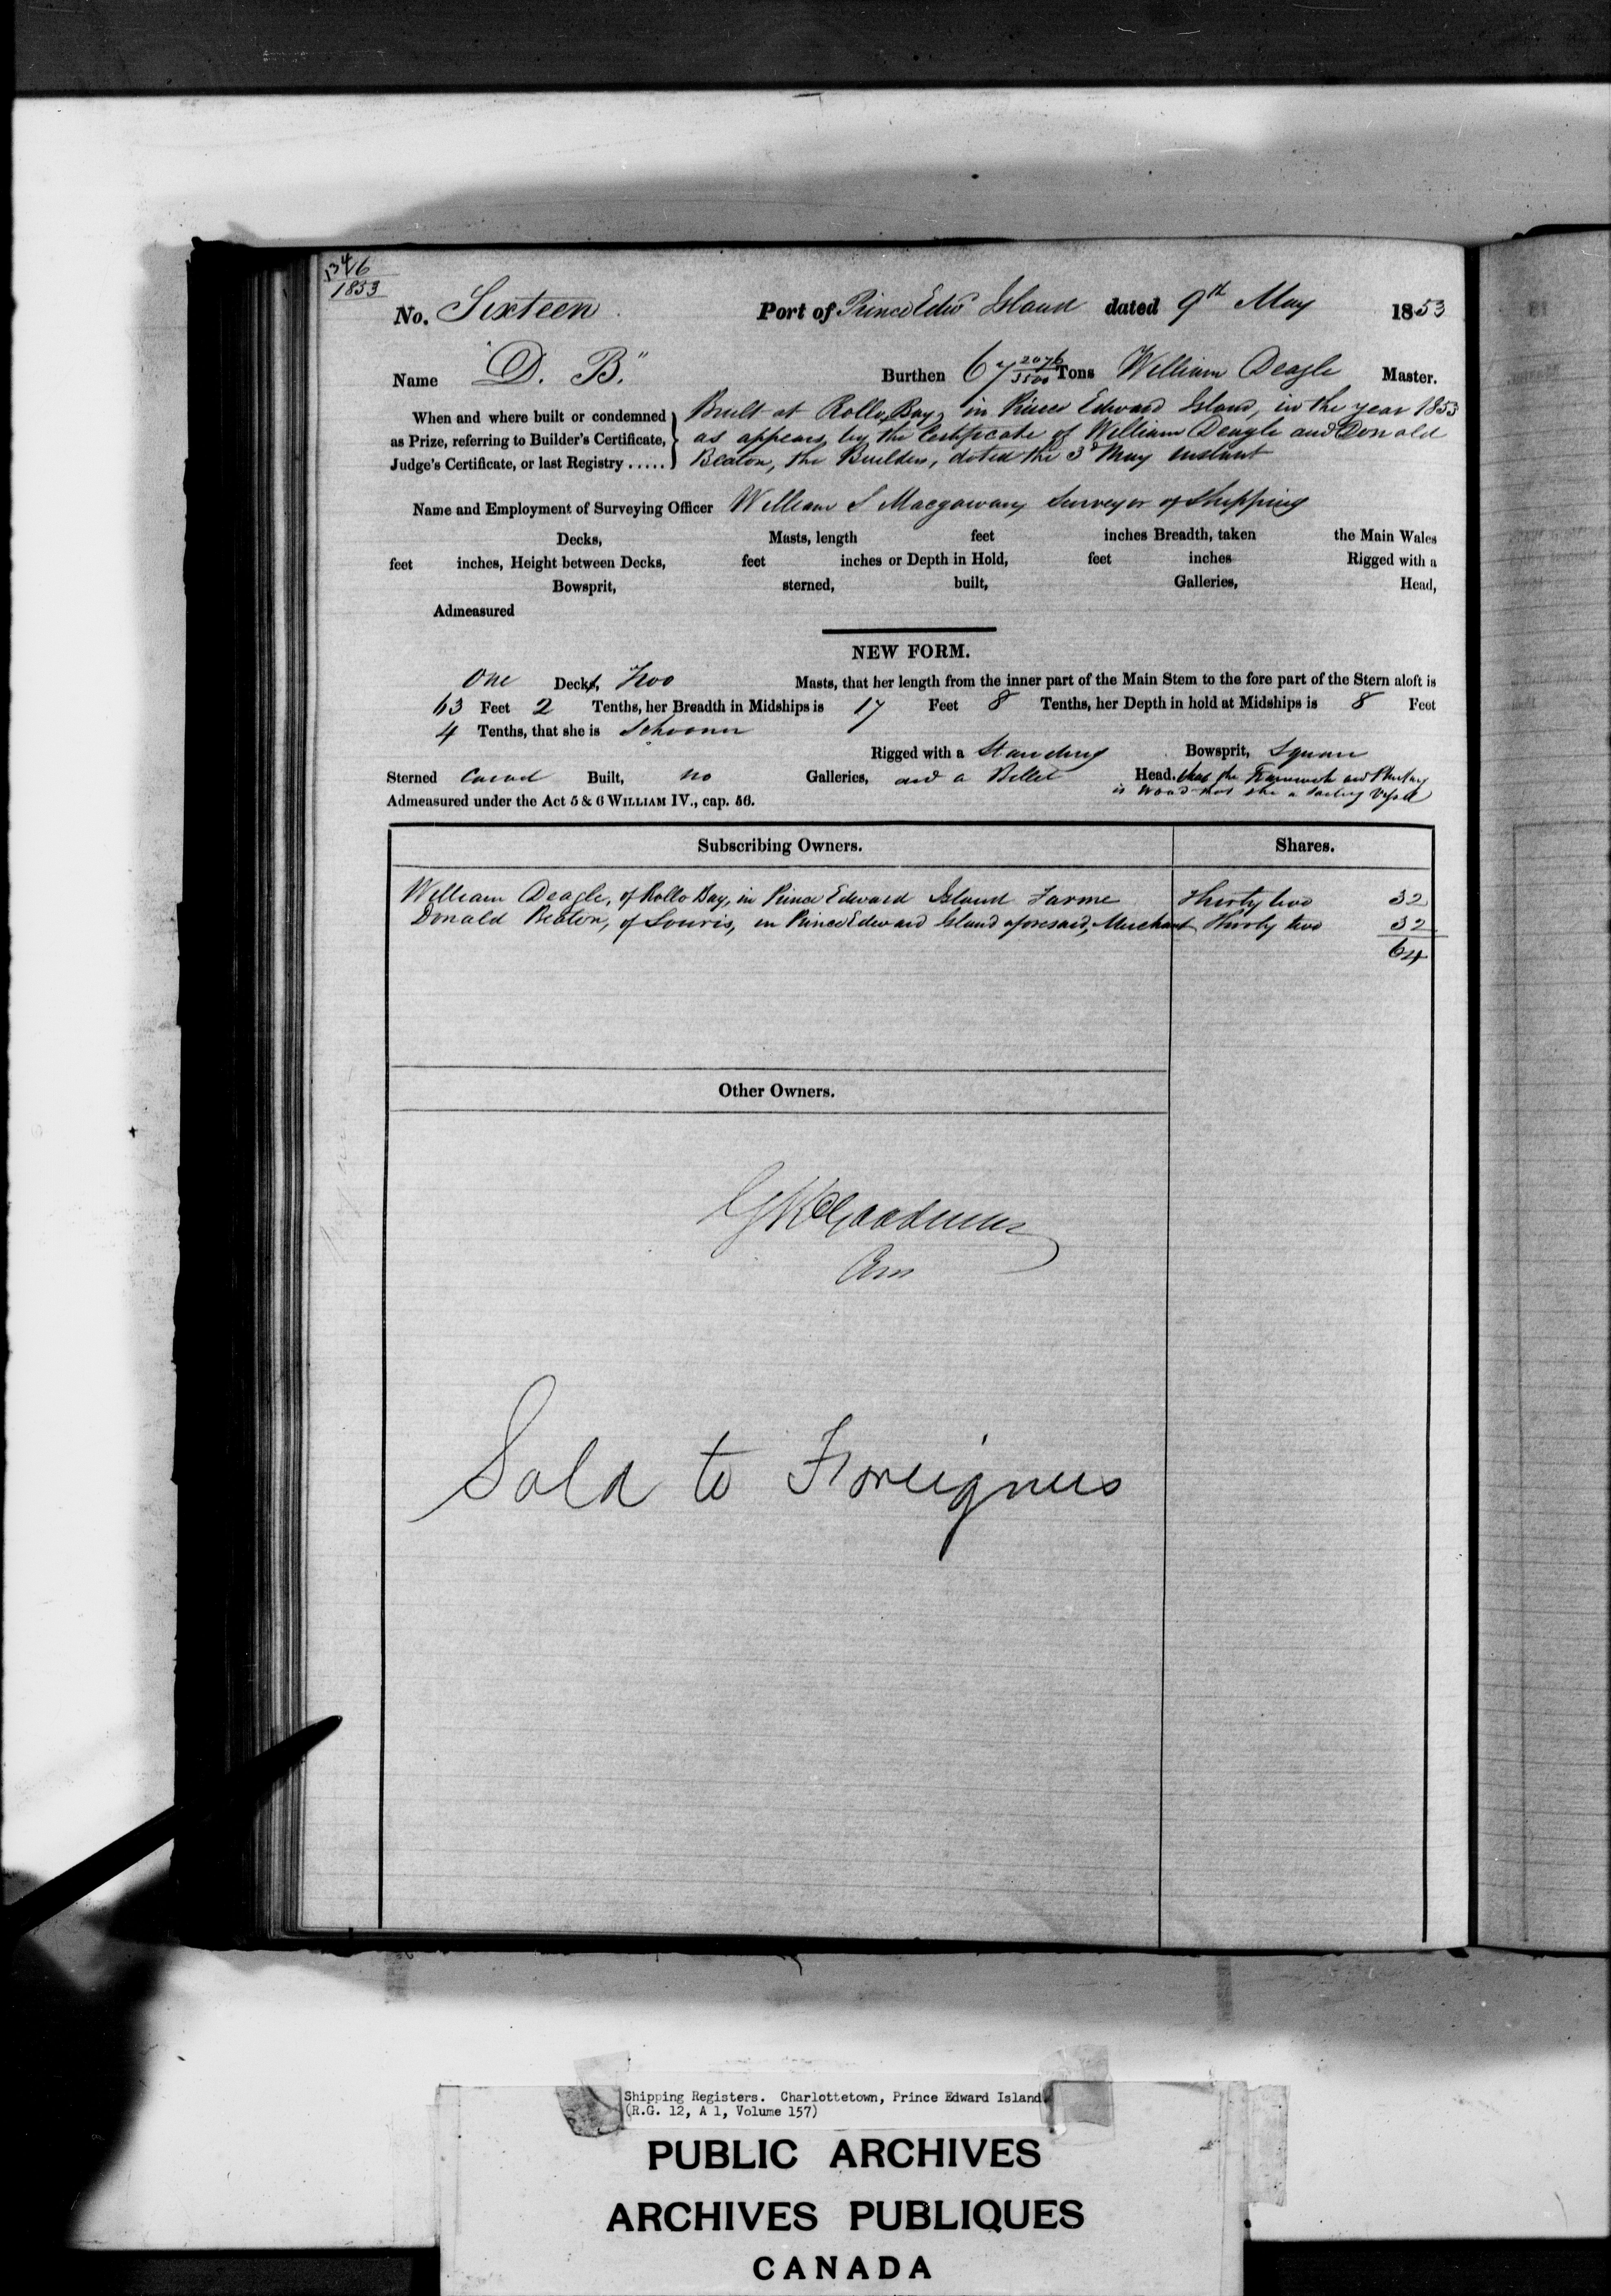 1346
1853
No. Sixteen Port of Prince Edwd Island dated 9th May 1853
Name "D. B." Burthen 67 2076/3500 Tons William Deagle Master.
When and where built or condemned as Prize, referring to Builder's Certificate, Judge's Certificate, or last Registry .....
Built at Rollo Bay, in Prince Edward Island, in the year 1853
as appears by the Certificate of William Deagle and Donald
Beaton, the Builders, dated the 3d May instant
Name and Employment of Surveying Officer William S Macgowan, Surveyor of Shipping
Decks, Masts, length feet inches Breadth, taken the Main Wales
feet inches, Height between Decks, feet inches or Depth in Hold, feet inches Rigged with a
Bowsprit, sterned, built, Galleries, Head,
Admeasured
NEW FORM.
One Decks, Two Masts, that her length from the inner part of the Main Stem to the fore part of the Stern aloft is
63 Feet 2 Tenths, her Breadth in Midships is 17 Feet 8 Tenths, her Depth in hold at Midships is 8 Feet
4 Tenths, that she is Schooner
Rigged with a Standing Bowsprit, Square
Sterned Carvel Built, no Galleries, and a Billet Head. that the Framework and Planking
is Wood that she a Sailing Vessel
Admeasured under the Act 5 & 6 WILLIAM IV., cap. 56.
Subscribing Owners. Shares.
William Deagle, of Rollo Bay, in Prince Edward Island Farmer Thirty two 32
Donald Beaton, of Souris, in Prince Edward Island aforesaid, Merchant Thirty two 32
64
Other Owners.
Goodman
Sold to Foreigners
Shipping Registers. Charlottetown, Prince Edward Island
(R.G. 12, A 1, Volume 157)
PUBLIC ARCHIVES
ARCHIVES PUBLIQUES
CANADA